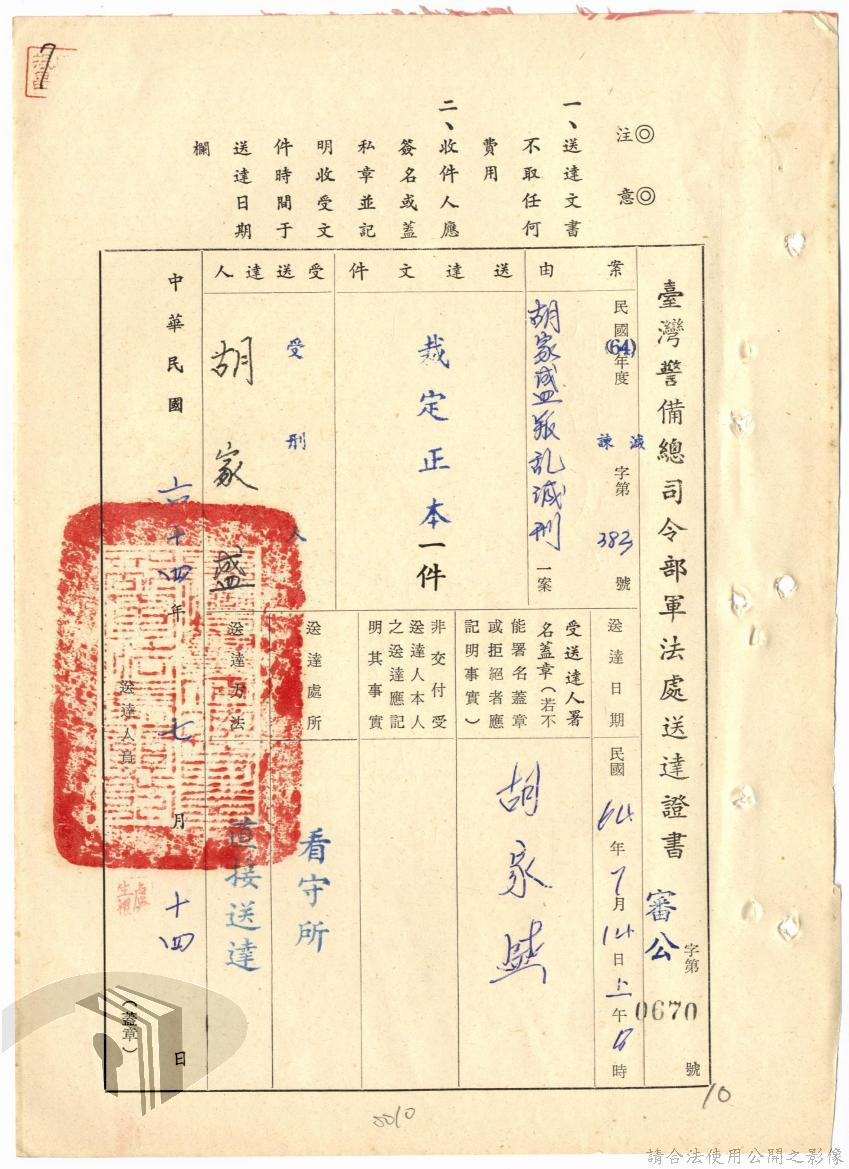 7
◎注意◎
一、送達文書
不取任何
費用
二、收件人應
簽名或蓋
私章並記
明收受文
件時間于
送達日期
欄
臺灣警備總司令部軍法處送達證書
審公字第0670號
案由
民國(64)年度諫減字第383號
胡家盛叛乱減刑一案
送達文件
裁定正本一件
受送達人
受刑人
胡家盛
送達日期
民國64年7月14日上午8時
受送達人署
名蓋章(若不
能署名蓋章
或拒絕者應
記明事實)
胡家盛
非交付受
送達人本人
之送達應記
明其事實
送達處所
看守所
送達方法
直接送達
中華民國六十四年七月十四日
送達人員
(蓋章)
0010
10
請合法使用公開之影像